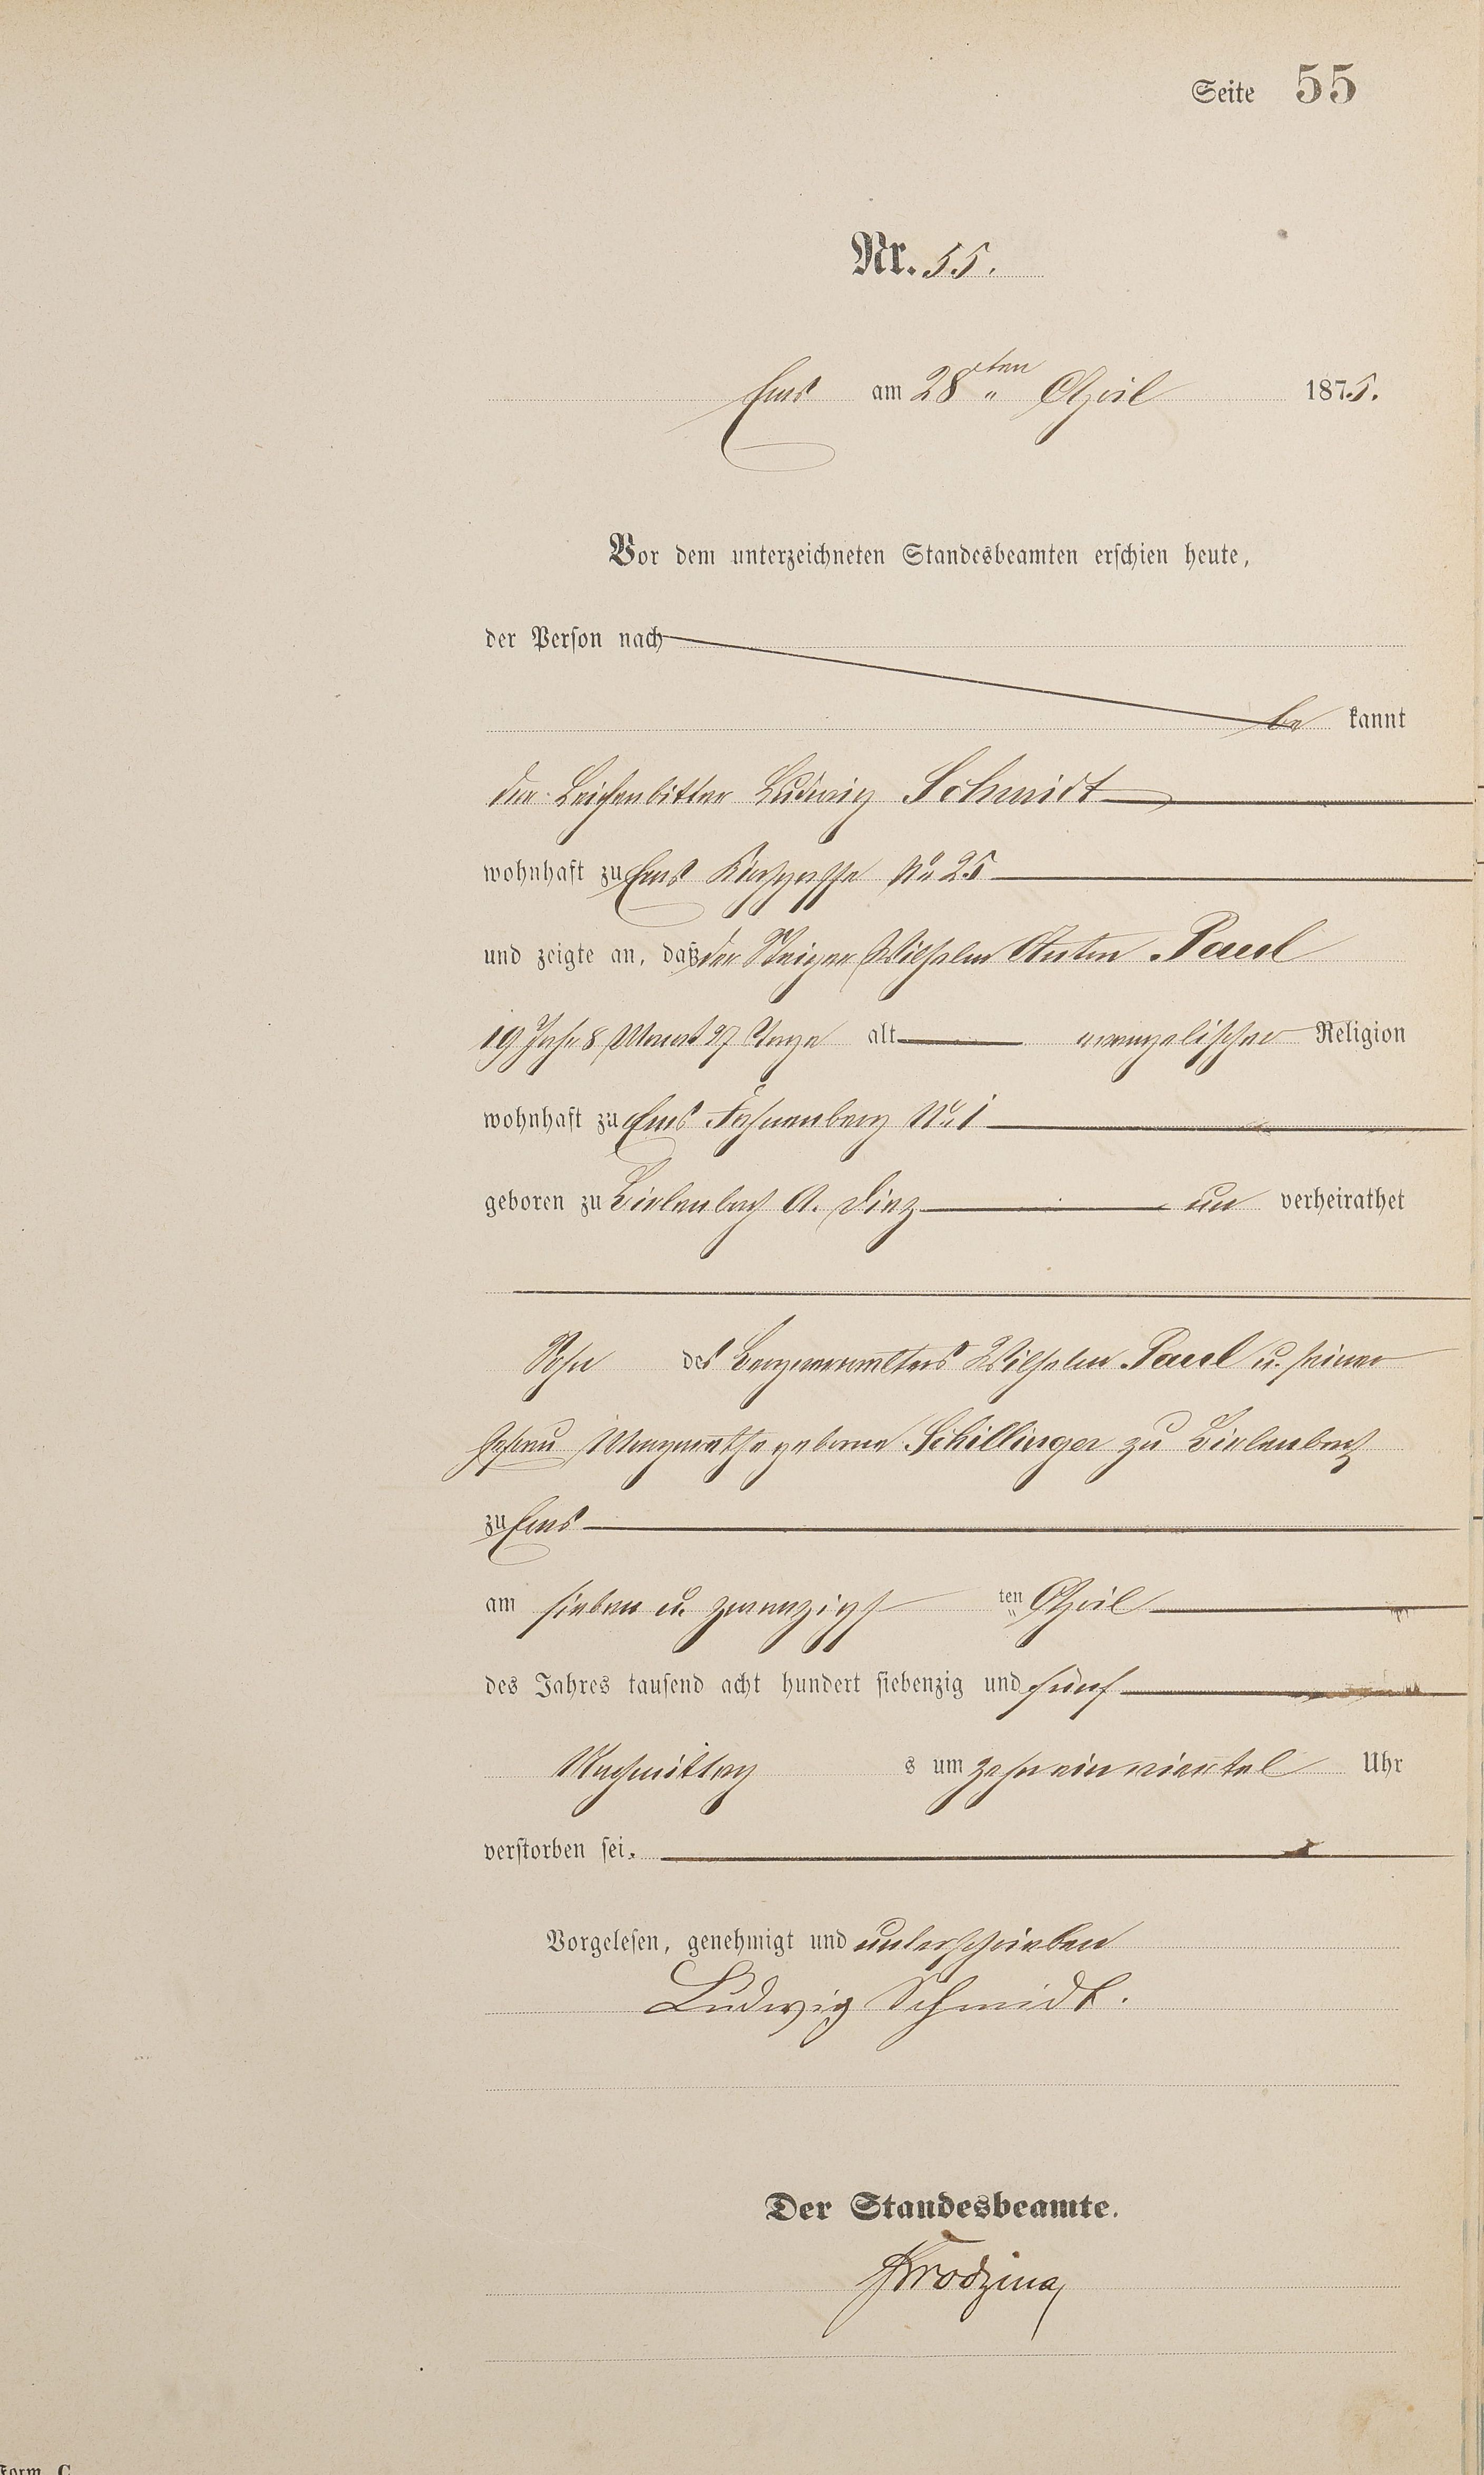 Seite 55
Nr. 55.
Ems am 28ten April 1875.
Vor dem unterzeichneten Standesbeamten erschien heute,
der Person nach
be kannt
der Leichenbitter Ludwig Schmidt
wohnhaft zu Ems Kirchgasse No 25
und zeigte an, daß der Steiger Wilhelm Anton Paul
19 Jahr 8 Monat 27 Tage alt evangelischer Religion
wohnhaft zu Ems No 1
geboren zu A. Diez un verheirathet
Sohn des Bergverwalters Wilhelm Paul u. seiner
Ehefrau geborne Schillinger zu
zu Ems
am sieben u. zwanzigst ten April
des Jahres tausend acht hundert siebenzig und fünf
Nachmittag s um zehn ein viertel Uhr
verstorben sei.
Vorgelesen, genehmigt und unterschrieben
Ludwig Schmidt.
Der Standesbeamte.
Form. C